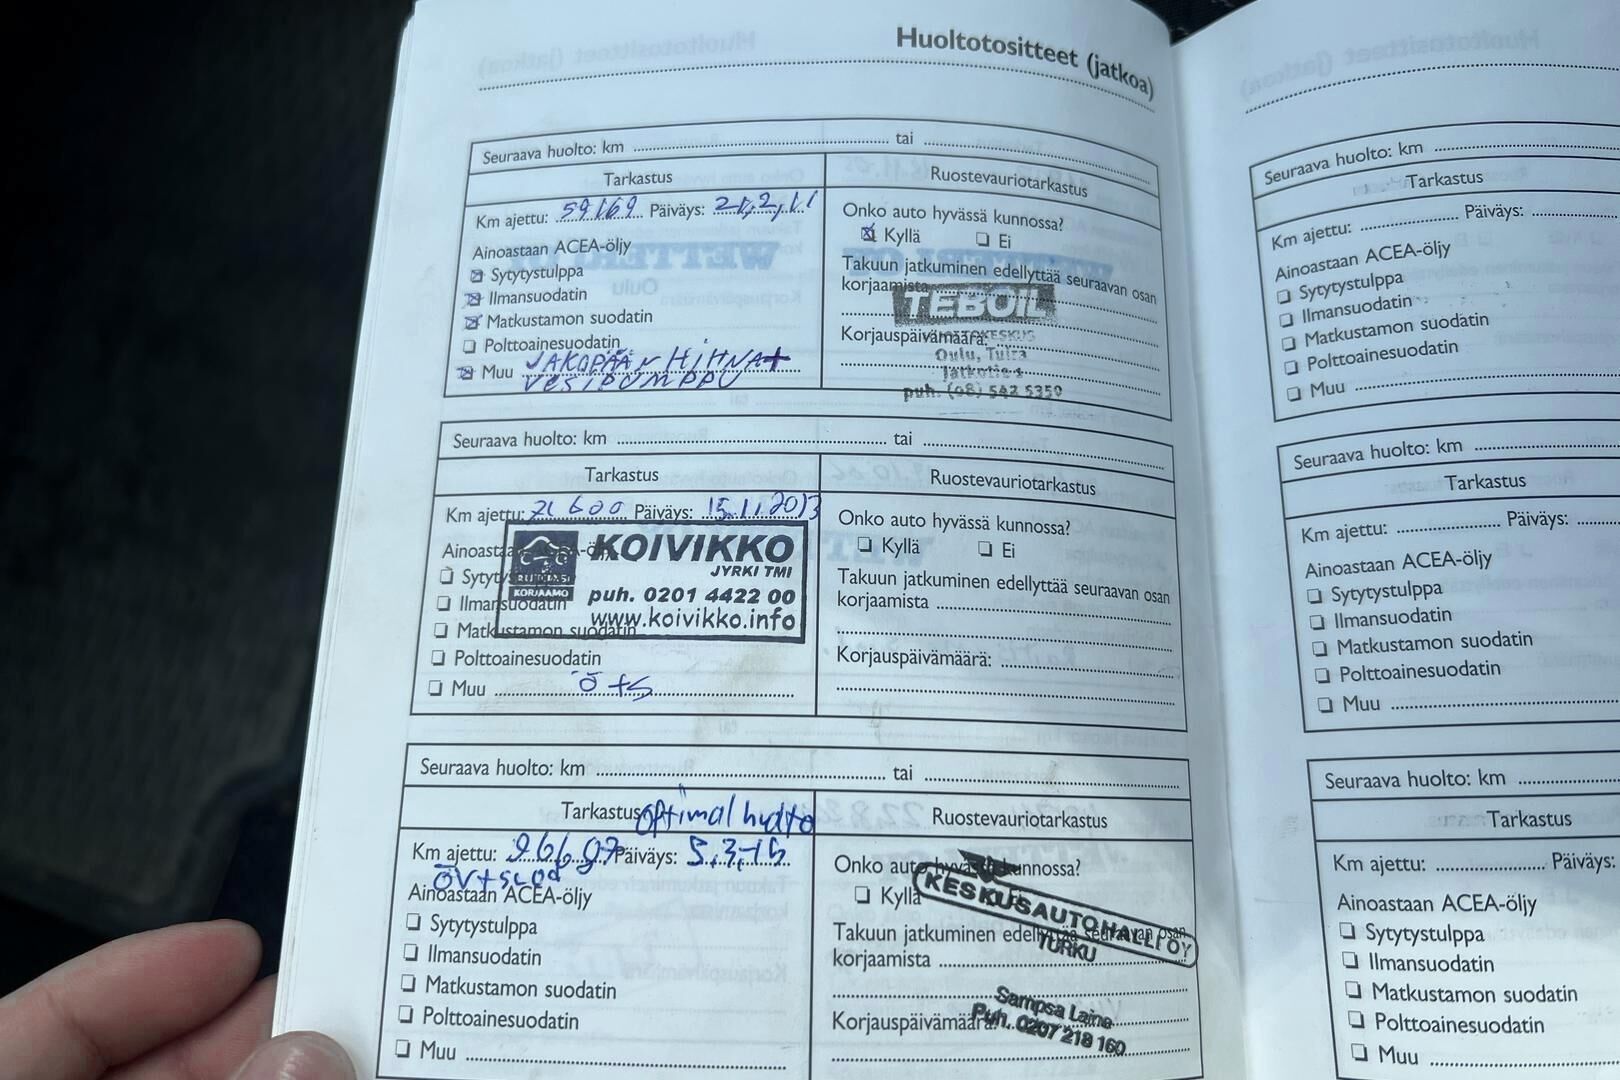 Huoltotositteet (jatkoa)
Seuraava huolto: km tai
Tarkastus
Ruostevauriotarkastus
Km ajettu: 59169 Päiväys: 21,2,11
Ainoastaan ACEA-öljy
Sytytystulppa
Ilmansuodatin
Matkustamon suodatin
Polttoainesuodatin
Muu JAKOPÄÄN HIHNA+
VESIPUMPPU
Onko auto hyvässä kunnossa?
Kyllä Ei
Takuun jatkuminen edellyttää seuraavan osan
korjaamista
TEBOIL
Korjauspäivämäärä:
Oulu, Tuira
Jatkotie 1
puh. (08) 542 5350
Seuraava huolto: km tai
Tarkastus
Ruostevauriotarkastus
Km ajettu: 71 600 Päiväys: 15.1.2013
Ainoastaan ACEA-öljy
Sytytystulppa
Ilmansuodatin
Matkustamon suodatin
Polttoainesuodatin
Muu ö+s
KOIVIKKO
JYRKI TMI
puh. 0201 4422 00
www.koivikko.info
KORJAAMO
Onko auto hyvässä kunnossa?
Kyllä Ei
Takuun jatkuminen edellyttää seuraavan osan
korjaamista
Korjauspäivämäärä:
Seuraava huolto: km tai
Tarkastus optimal huolto
Ruostevauriotarkastus
Km ajettu: 96697 Päiväys: 5.3.-15
öv+suod
Ainoastaan ACEA-öljy
Sytytystulppa
Ilmansuodatin
Matkustamon suodatin
Polttoainesuodatin
Muu
Onko auto hyvässä kunnossa?
Kyllä
KESKUSAUTOHALLI OY
TURKU
Takuun jatkuminen edellyttää seuraavan osan
korjaamista
Sampsa Laine
Puh. 0207 218 160
Korjauspäivämäärä:
Seuraava huolto: km
Tarkastus
Km ajettu: Päiväys:
Ainoastaan ACEA-öljy
Sytytystulppa
Ilmansuodatin
Matkustamon suodatin
Polttoainesuodatin
Muu
Seuraava huolto: km
Tarkastus
Km ajettu: Päiväys:
Ainoastaan ACEA-öljy
Sytytystulppa
Ilmansuodatin
Matkustamon suodatin
Polttoainesuodatin
Muu
Seuraava huolto: km
Tarkastus
Km ajettu: Päiväys:
Ainoastaan ACEA-öljy
Sytytystulppa
Ilmansuodatin
Matkustamon suodatin
Polttoainesuodatin
Muu